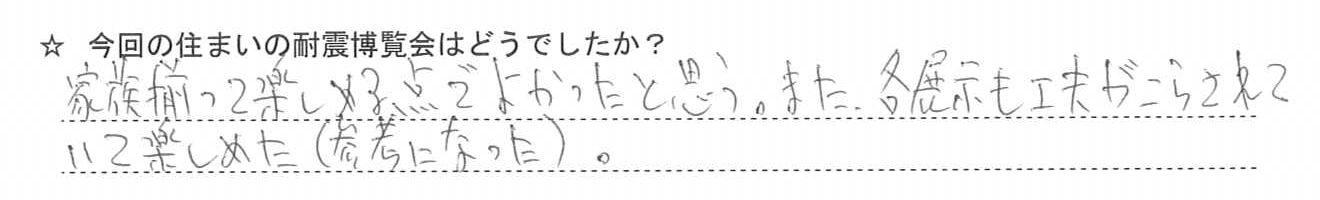 ☆ 今回の住まいの耐震博覧会はどうでしたか？
家族揃って楽しめる点でよかったと思う。また、各展示も工夫がこらされて
いて楽しめた（参考になった）。